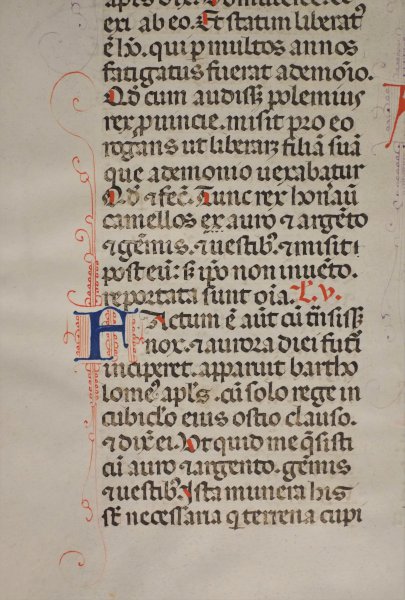 exi ab eo. Et statim liberat᷒
ē hō. qui ꝑ multos annos
fatigatus fuerat a demōio.
Qđ cum audisꝫ polemius
rex ꝓuincie. misit pro eo
rogans ut liberarꝫ filiā suā
que a demonio uexabatur
Qđ ⁊ fēc̄. Tunc rex honāū
camellos ex auro ⁊ argēto
⁊ gēmis. ⁊ uestibꝫ. ⁊ misit i
post eū: sꝫ ip̄o non inuēto.
reportata sunt oīa. L̄. v.
FActum ē aūt cū trāsisꝫ
nox. ⁊ aurora diei futuri
inciperet. apparuit bartho
lomeꝰ apl̄s. cū solo rege in
cubicl̓o eius ostio clauso.
⁊ dixͥ ei. Ut quid me q̄sisti
cū auro ⁊ argento. gēmis
⁊ uestibꝫ. Ista munera his
st̄ necessaria q̇ terrena cupi